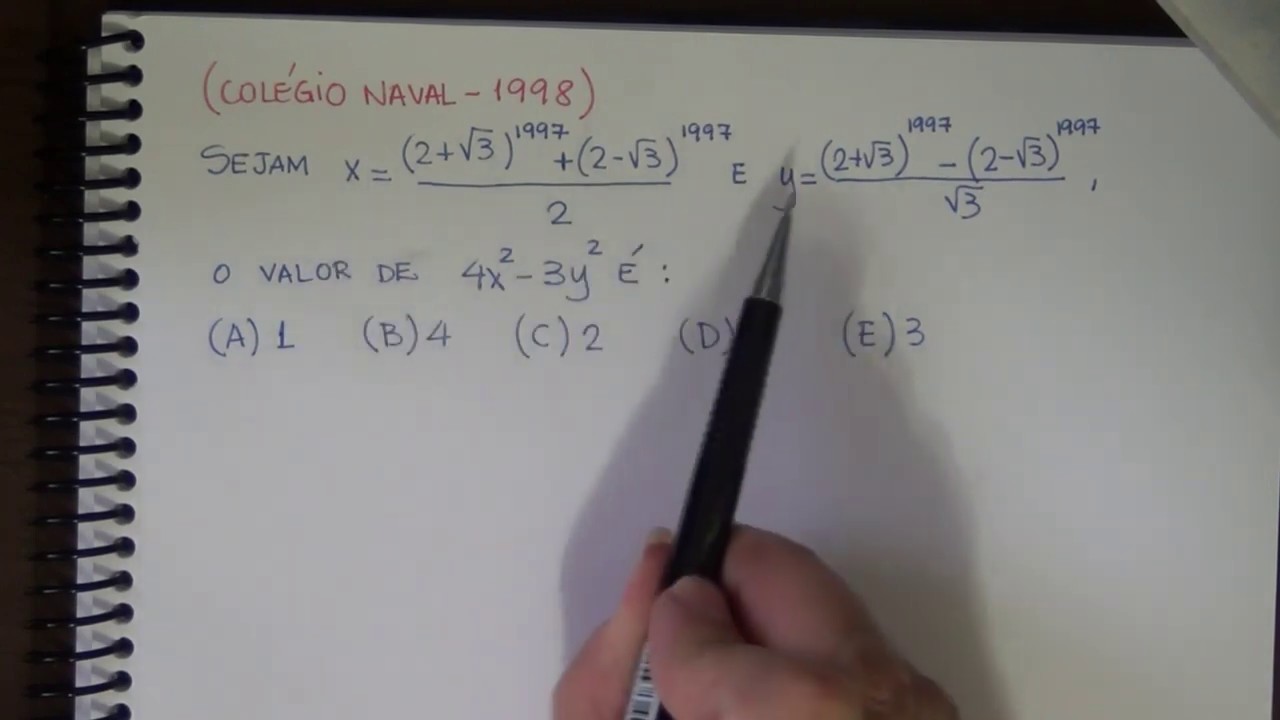 (COLÉGIO NAVAL - 1998)
SEJAM x = ((2+√3)^1997 + (2-√3)^1997)/2 E y = ((2+√3)^1997 - (2-√3)^1997)/√3 ,
O VALOR DE 4x² - 3y² É :
(A) 1 (B) 4 (C) 2 (D) (E) 3